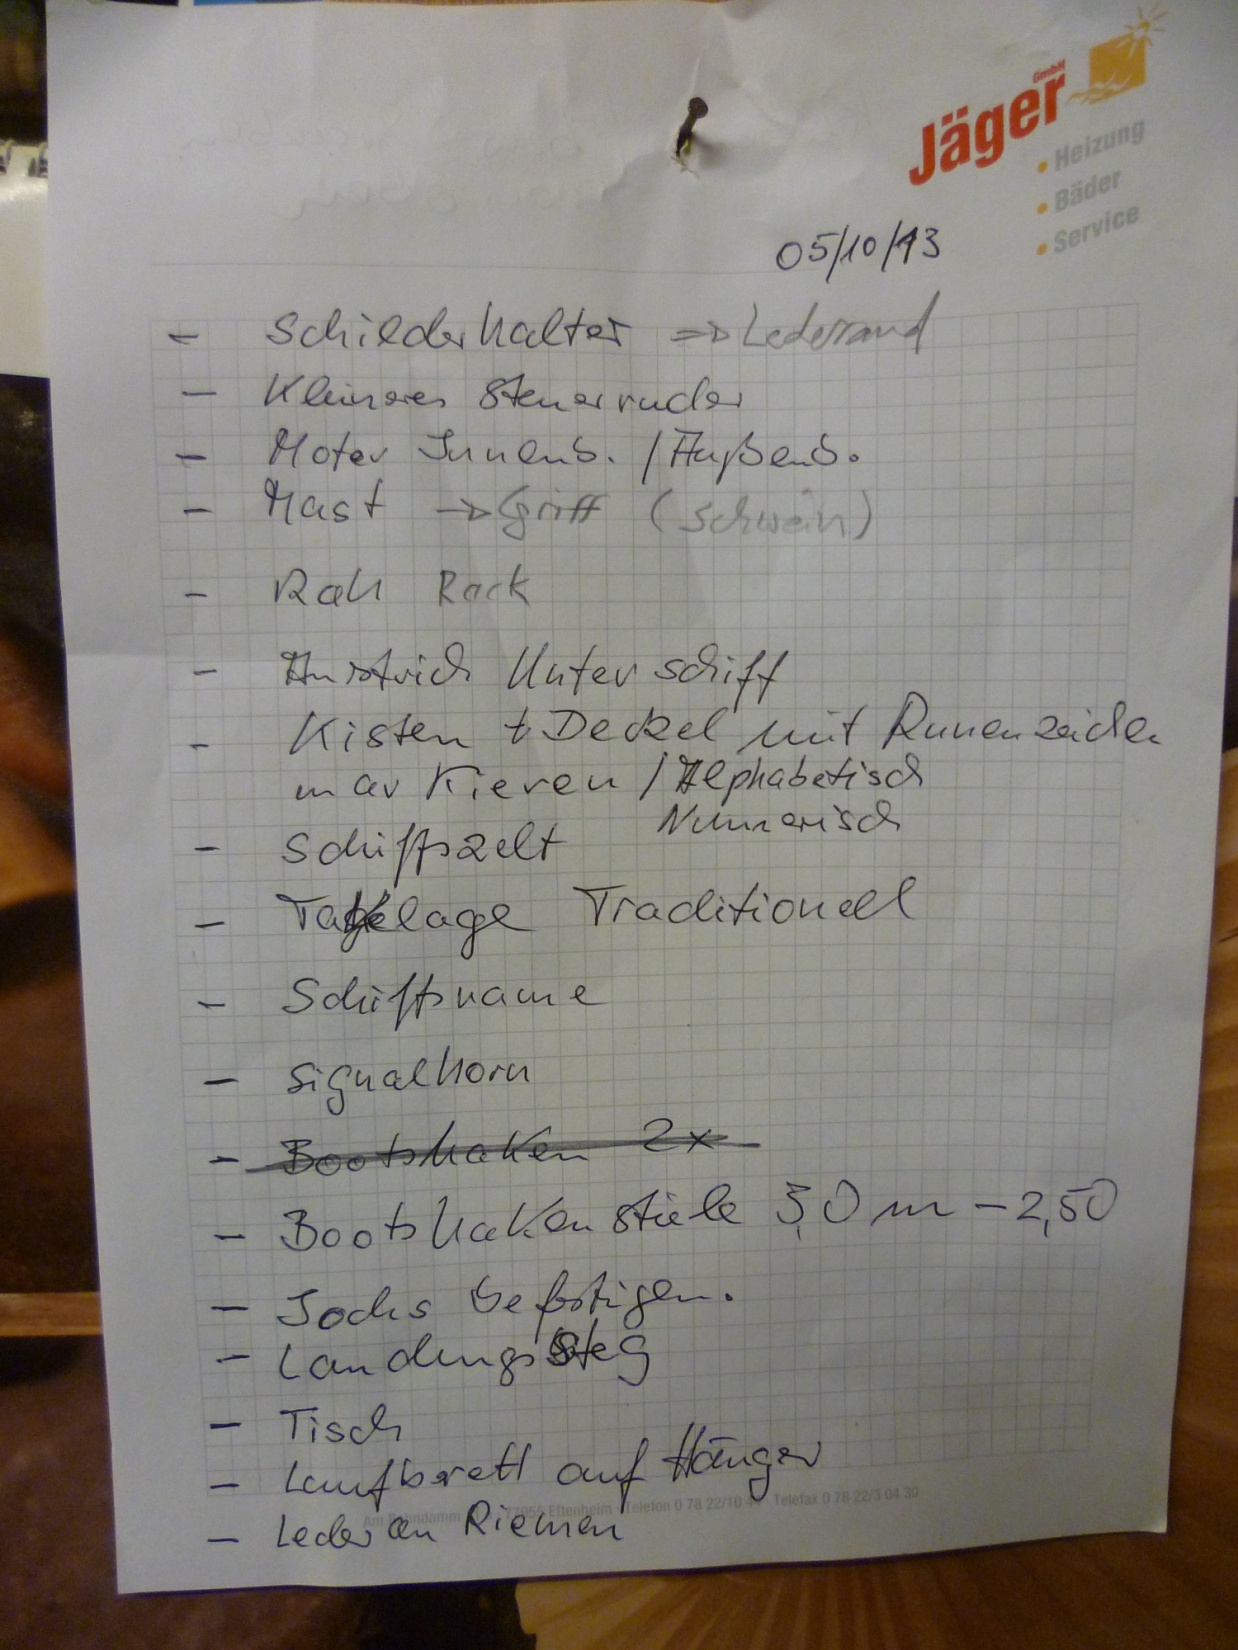 Jäger GmbH
• Heizung
• Bäder
• Service
05/10/13
- Schilderhalter => Lederrand
- Kleineres Steuerruder
- Motor Innenb. / Außenb.
- Mast -> Griff (Schwein)
- Rah Rack
- Anstrich Unterschiff
- Kisten + Deckel mit Runenzeichen
markieren / Alphabetisch
Numerisch
- Schiffszelt
- Takelage Traditionell
- Schiffsname
- Signalhorn
- Bootshaken 2x
- Bootshakenstiele 3,0 m - 2,50
- Jochs befestigen.
- Landungssteg
- Tisch
- Laufbrett auf Hänger
Am Bahndamm 77955 Ettenheim Telefon 0 78 22/10 Telefax 0 78 22/3 04 30
- Leder an Riemen